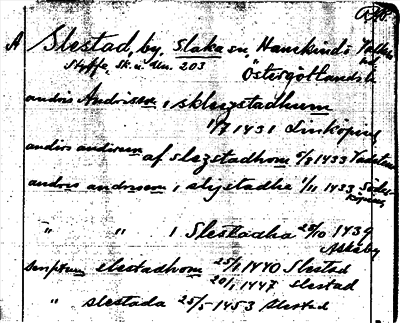 A Slestad, by, Slaka sn, Hanekinds
Styffe, Sk. u. Un. 203 Östergötlands l.
anders Andrisson, i sklezstadhum
1/7 1431 Linköping
anders andersson af slezstadhom 1433 Vadstena
andris andersson i slystadha 1/11 1433 Söderköping
" " i Slestadha 29/10 1439
Askeby
scriptum slestadhom 25/1 1440 Slestad
20/1 1447 Slestad
" slestada 25/5 1453 Slestad